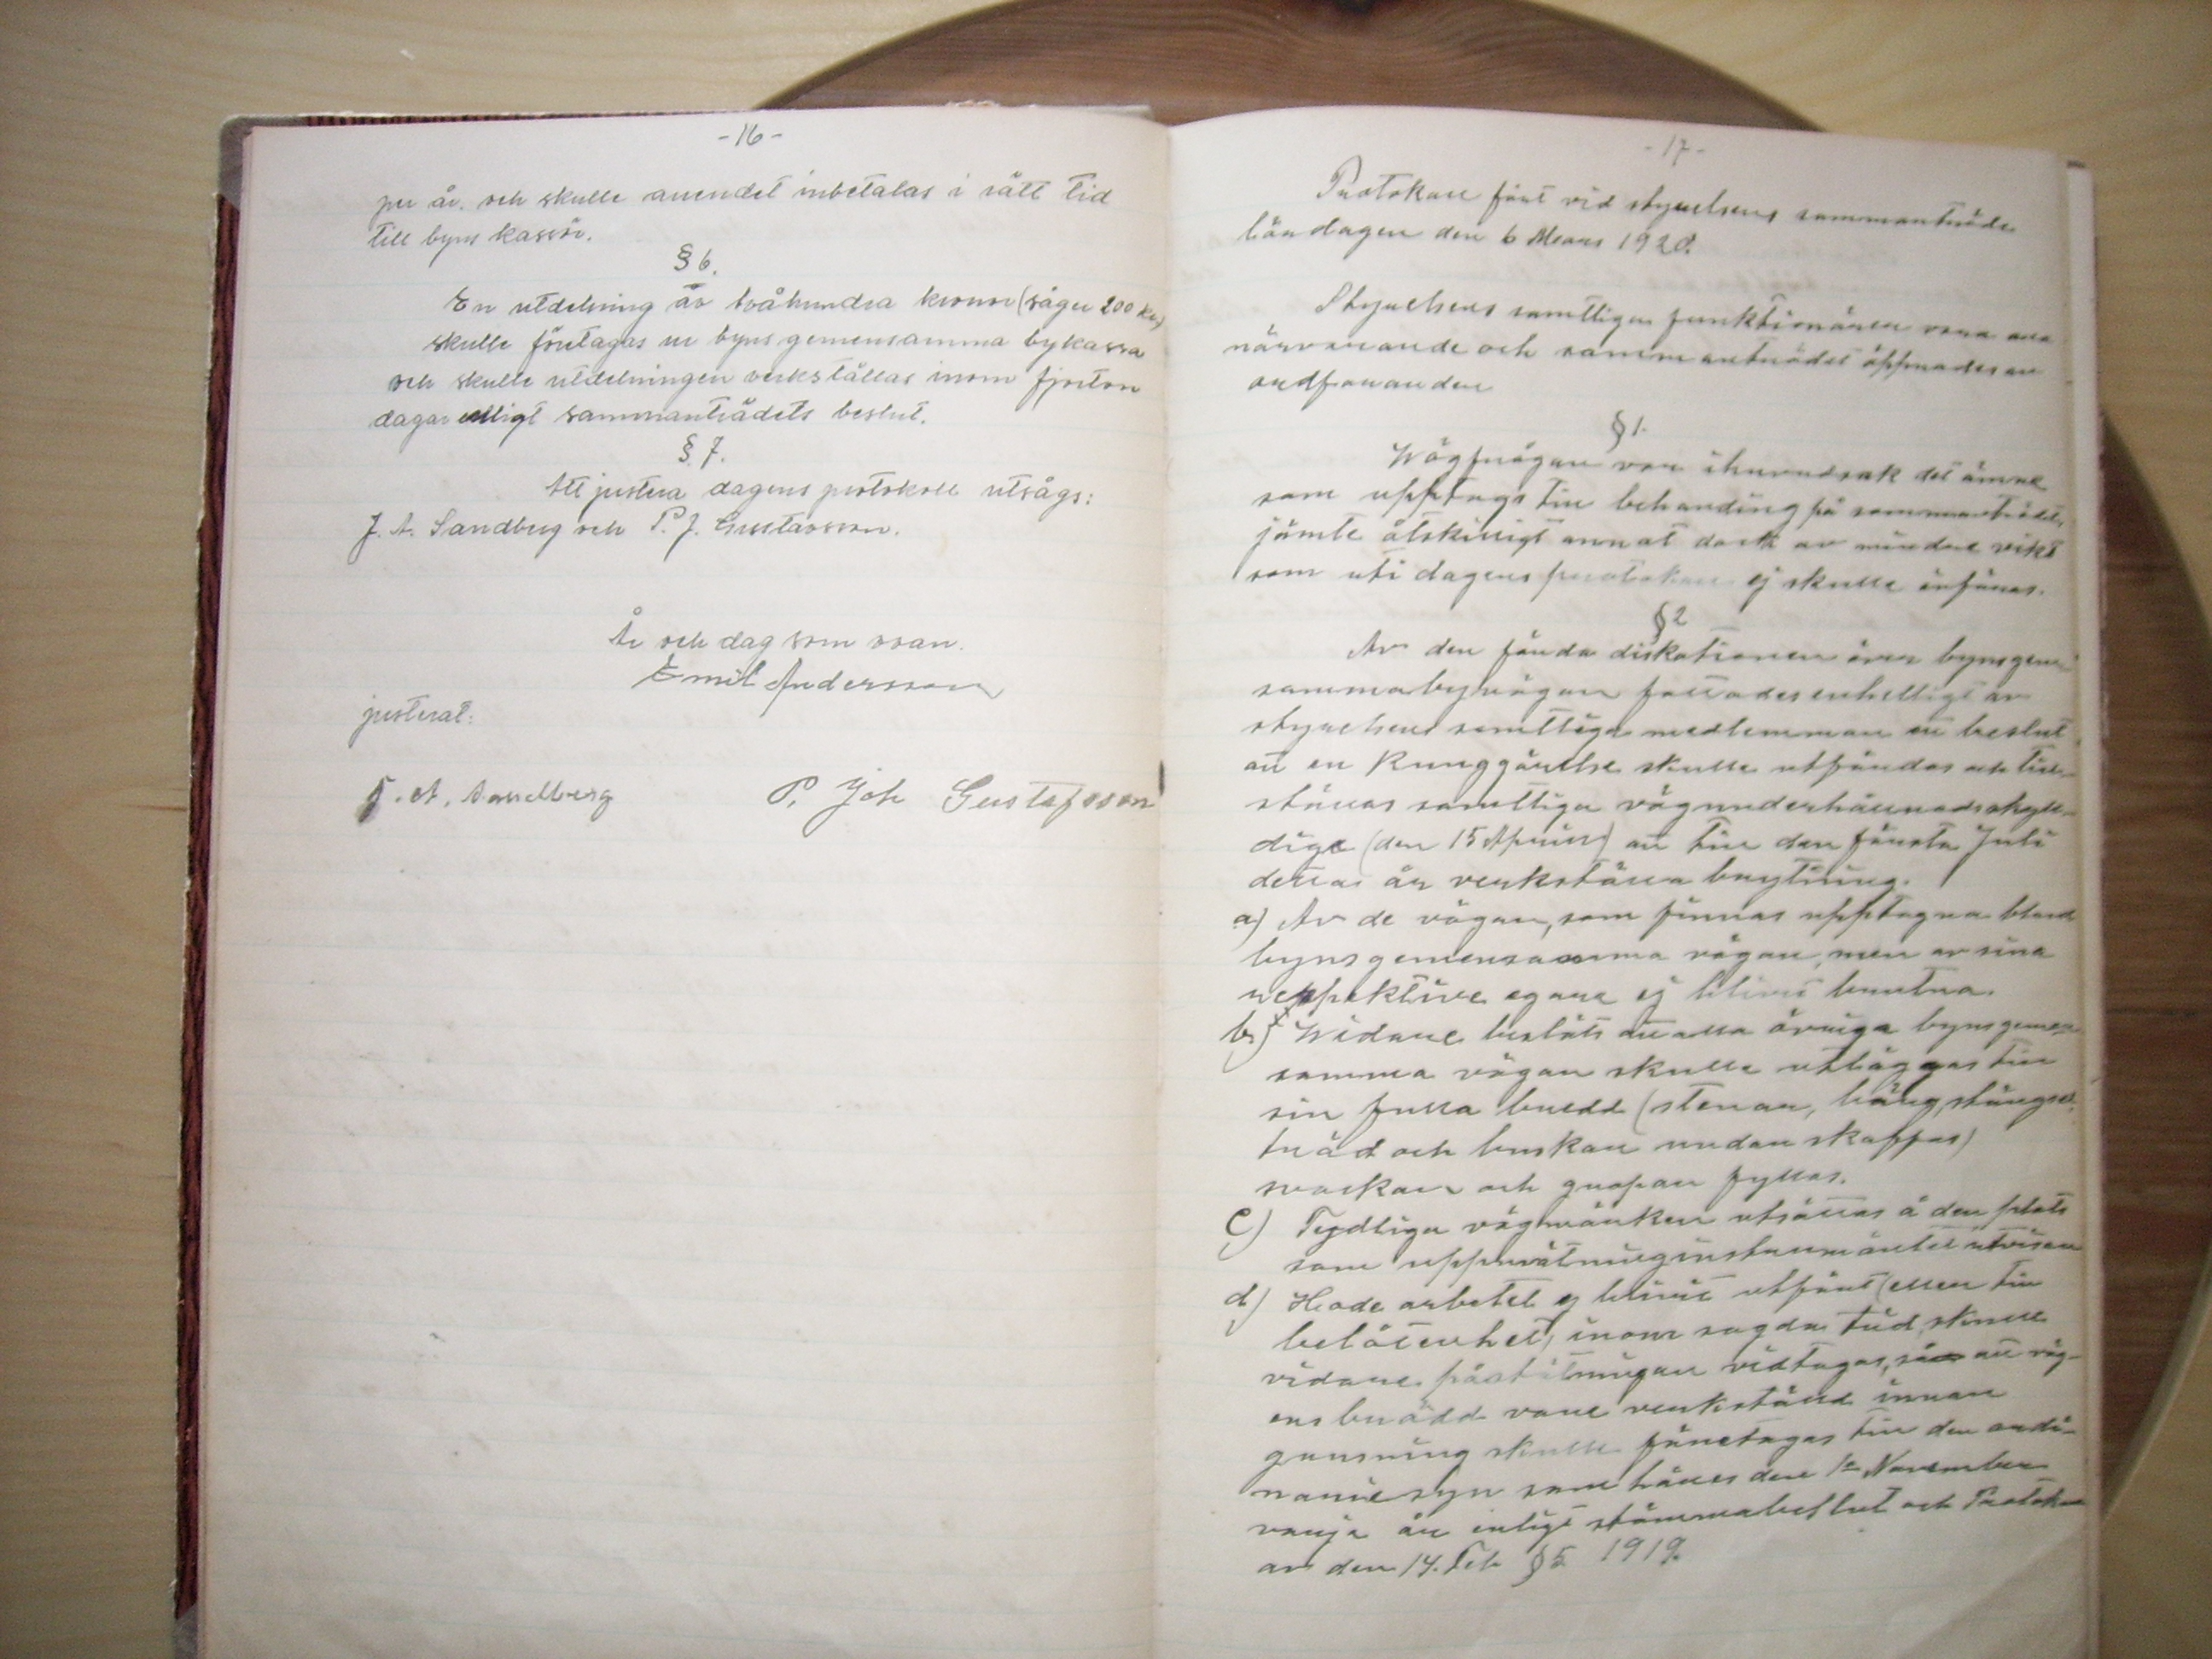 -16-
per år. och skulle arrendet inbetalas i rätt tid
till byns kassör.
§ 6.
En utdelning av tvåhundra kronor (säger 200 kr.)
skulle företagas ur byns gemensamma bykassa
och skulle utdelningen verkställas inom fjorton
dagar enligt sammanträdets beslut.
§ 7.
Att justera dagens protokoll utsågs:
J. A. Sandberg och P. J. Gustavsson.
År och dag som ovan.
Emil Andersson
justerat:
J. A. Sandberg P. Joh Gustafsson
-17-
Protokoll fört vid styrelsens sammanträde
lördagen den 6 Mars 1920.
Styrelsens samtliga funktionärer voro
närvarande och sammanträdet öppnades av
ordföranden
§ 1.
Wägfrågan var ihuvudsak det ämne
som upptogs till behandling på sammanträdet,
jämte åtskilligt annat dock av mindre vikt
som uti dagens protokoll ej skulle införas.
§ 2
Av den förda diskotionen över bynsgemen
sammabyvägar fattades enhelligt av
styrelsens samtliga medlemmar ett beslut
att en Kunggörelse skulle utfärdas och till-
ställas samtliga vägunderhållnadsskyl-
dige (den 15 April) att till den första Juli
detta år verkställa brytning.
a) Av de vägar, som finnas upptagna bland
byns gemensamma vägar, men av sina
respektive egare ej blivit brutna.
b) Widare beslöts att alla övriga byns gemen
samma vägar skulle utläggas till
sin fulla bredd (stenar, berg, stängsel,
träd och buskar undan skaffas)
svackar och gropar fyllas.
c) Tydliga vägmärken utsättas å den plats
som uppmätningsinstrumäntet utvisar
d) Hade arbetet ej blivit utfört (eller till
belåtenhet) inom sagda tid, skulle
vidare påstötningar vidtagas, så att väg-
ens brädd vore verkställd innan
grusning skulle företagas till den ordi-
narie syn som hålles den 1a November
varje år enligt stämmobeslut och Protokoll
av den 14. Feb § 5 1919.